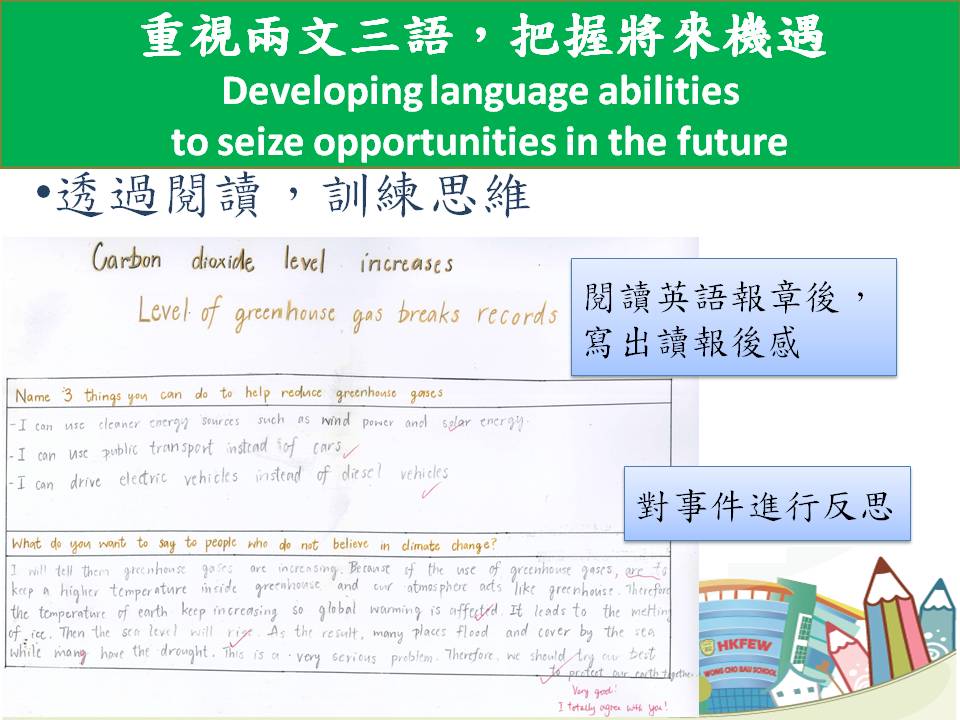 重視兩文三語，把握將來機遇
Developing language abilities
to seize opportunities in the future
•透過閱讀，訓練思維
Carbon dioxide level increases
Level of greenhouse gas breaks records
閱讀英語報章後，
寫出讀報後感
Name 3 things you can do to help reduce greenhouse gases
- I can use cleaner energy sources such as wind power and solar energy.
- I can use public transport instead of cars
- I can drive electric vehicles instead of diesel vehicles
對事件進行反思
What do you want to say to people who do not believe in climate change?
I will tell them greenhouse gases are increasing. Because of the use of greenhouse gases, are to
keep a higher temperature inside greenhouse and our atmosphere acts like greenhouse. Therefore
the temperature of earth keep increasing so global warming is affected. It leads to the melting
of ice. Then the sea level will rise. As the result, many places flood and cover by the sea
while many have the drought. This is a very serious problem. Therefore, we should try our best
to protect our earth together.
Very good!
I totally agree with you!
HKFEW
WONG CHO BAU SCHOOL